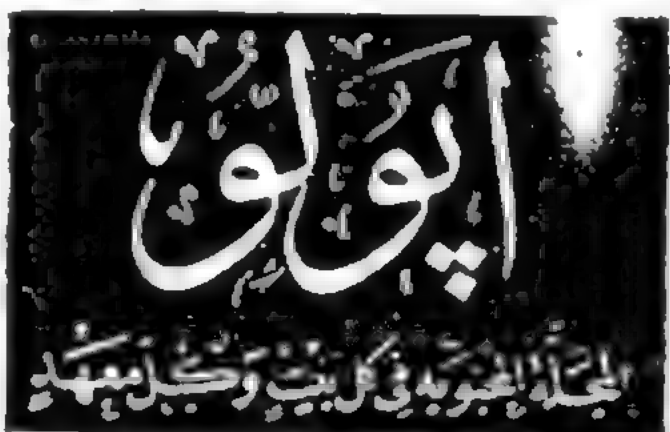 اپولو
المجلة المحبوبة في كل بيت وكل